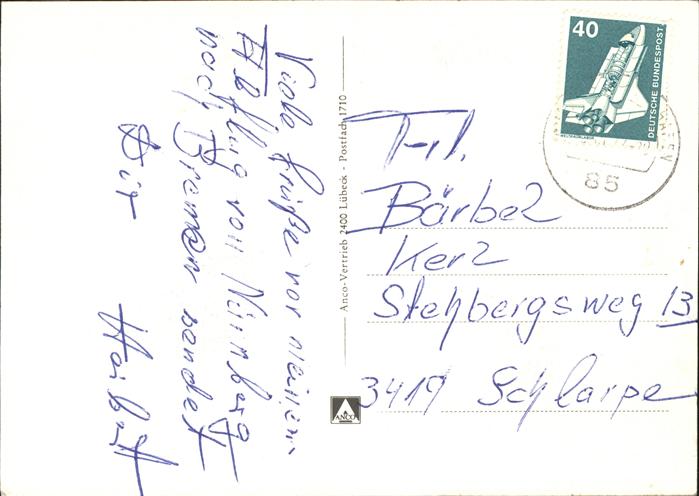 Viele Grüße vor meinem
Abflug von Nürnberg
nach Bremen sendet
Dir
Anco-Vertrieb 2400 Lübeck - Postfach 1710
ANCO
40
DEUTSCHE BUNDESPOST
85
Frl.
Bärbel
Kerz
Stehbergsweg 13
3419 Schlarpe